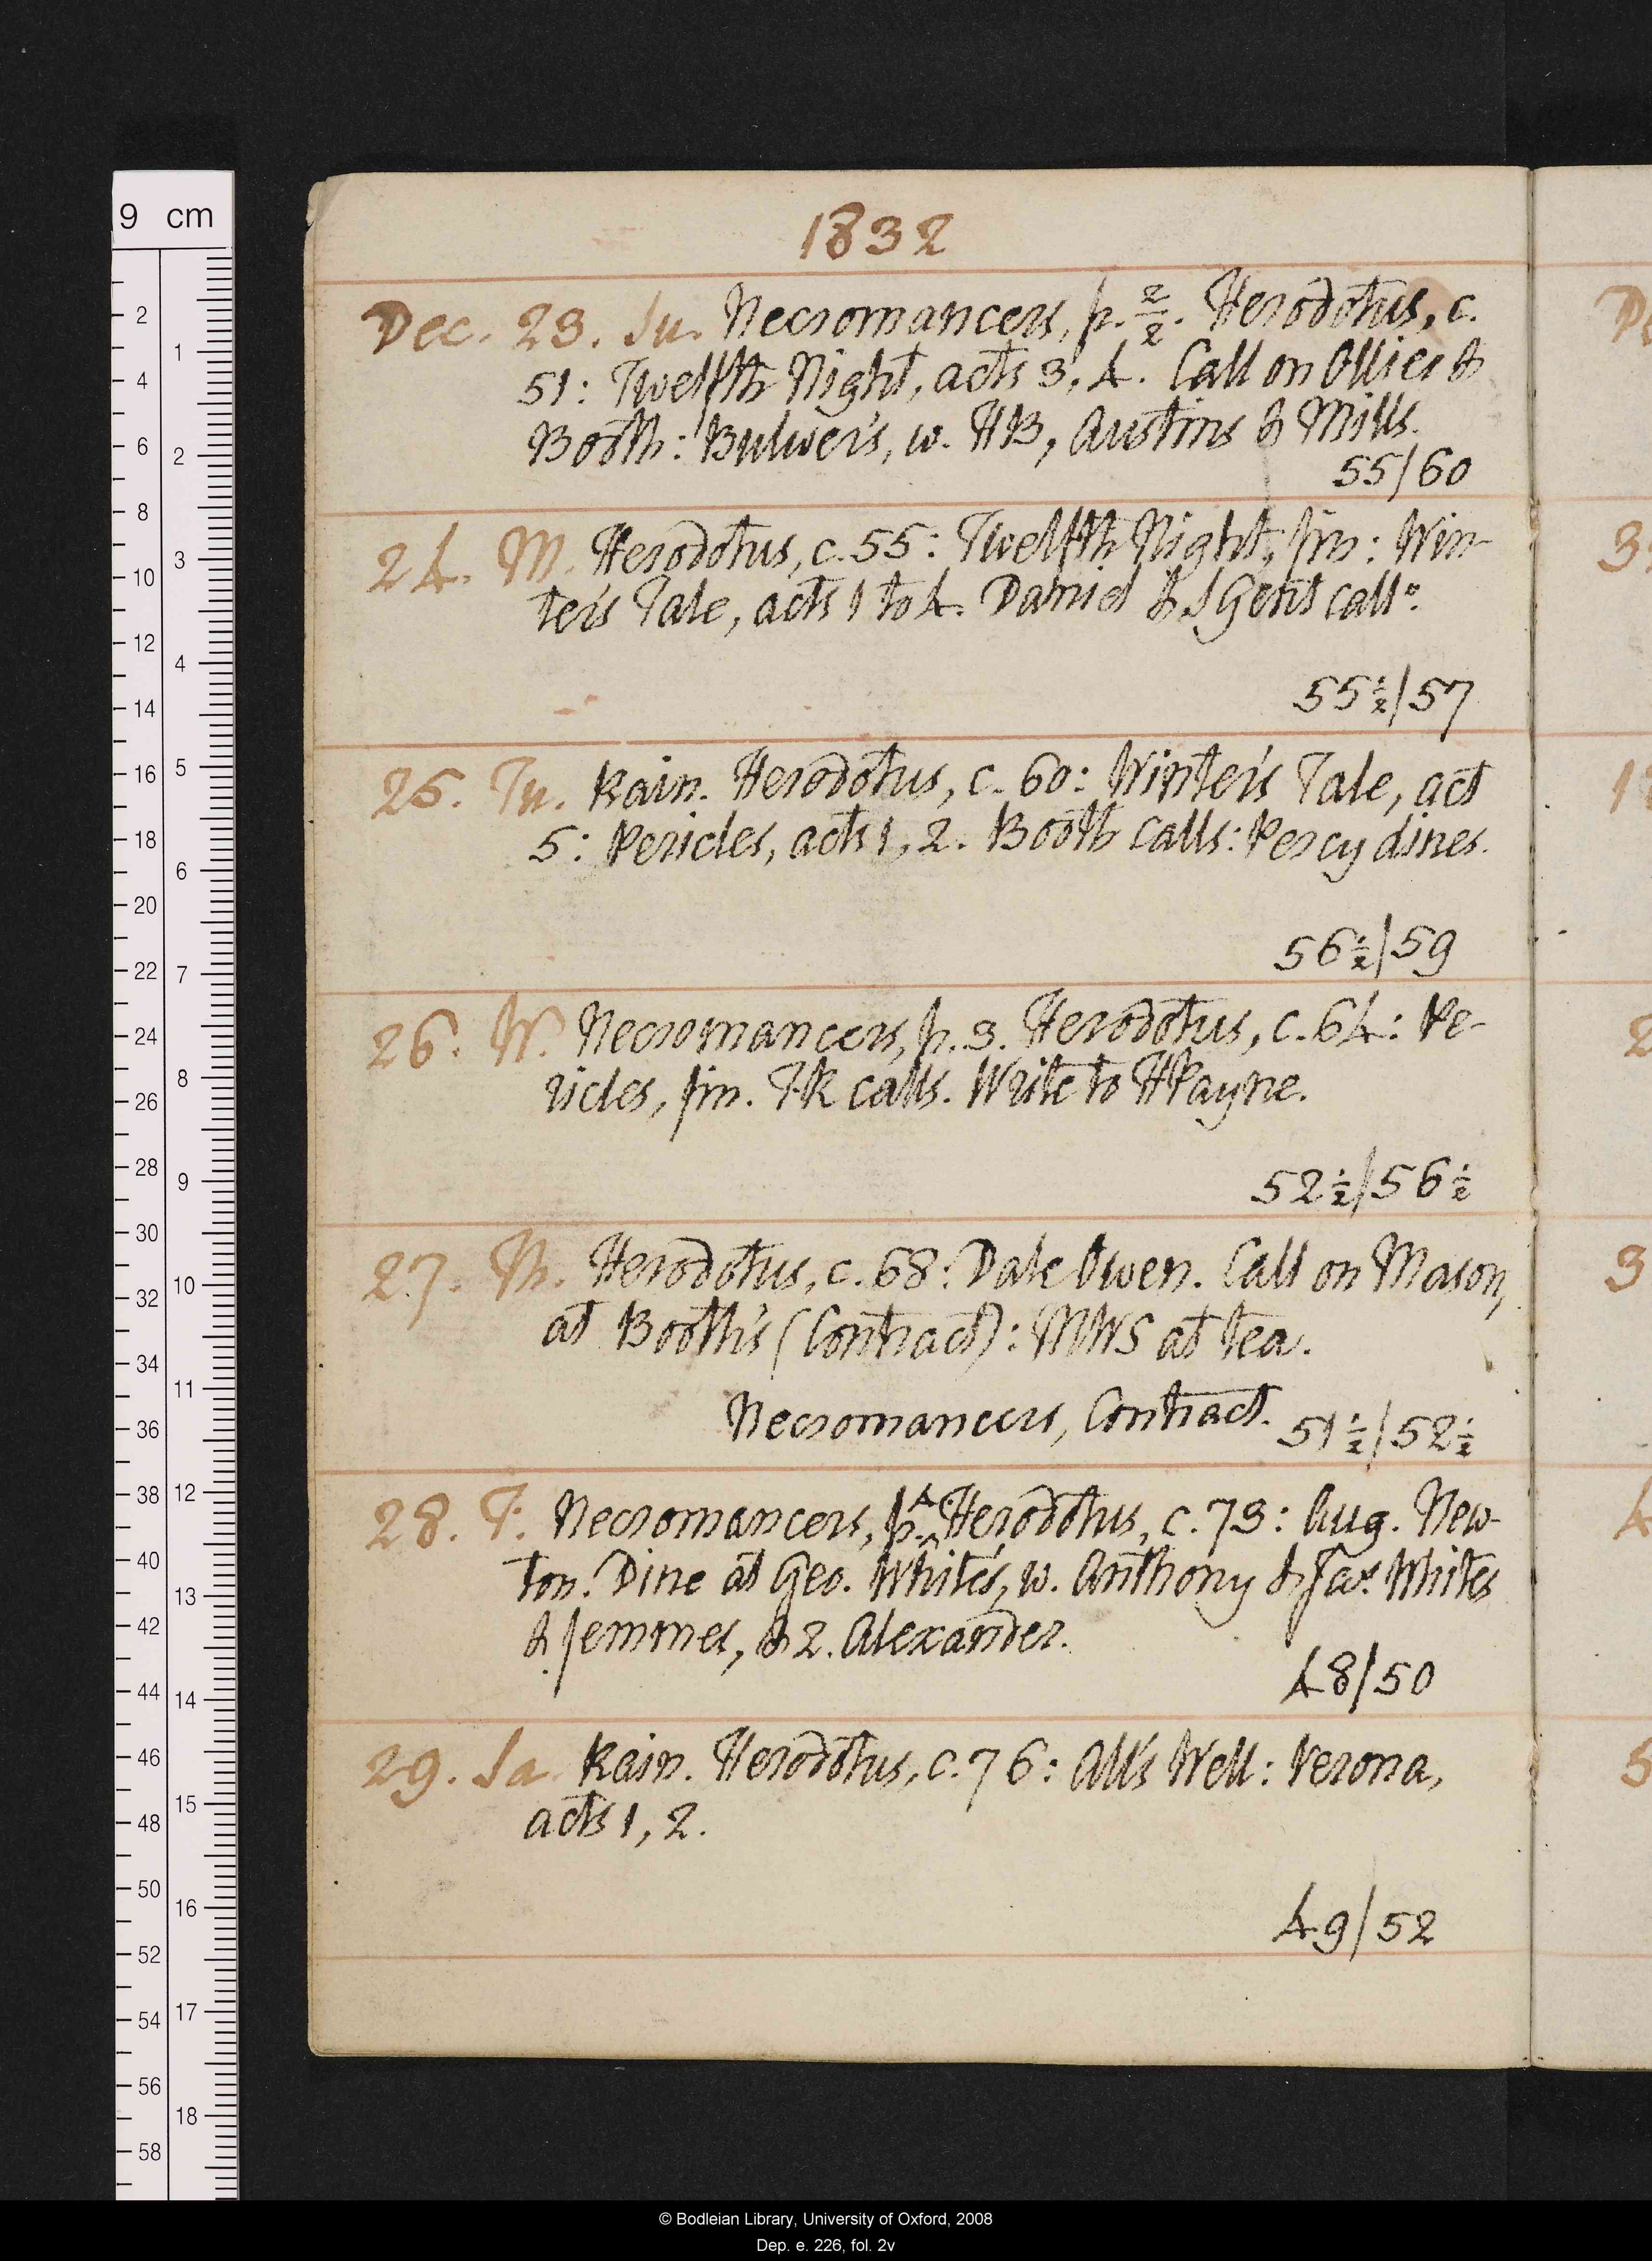 1832
Dec. 23. Su. Necromancers, p. 2/2. Herodotus, c.
51: Twelfth Night, acts 3, 4. Call on Ollier &
Booth: Bulwer's, w. HB, Austins & Mills.
55/60
24. M. Herodotus, c. 55: Twelfth Night, fin: Win-
ter's Tale, acts 1 to 4. Daniel & JGent callⁿ.
55½/57
25. Tu. Rain. Herodotus, c. 60: Winter's Tale, act
5: Pericles, acts 1, 2. Booth calls: Percy dines.
56½/59
26. W. Necromancers, p. 3. Herodotus, c. 64: Pe-
ricles, fin. TK calls. Write to HPayne.
52½/56½
27. Th. Herodotus, c. 68: Dale Owen. Call on Mason,
at Booth's (Contract): MWS at tea.
Necromancers, Contract. 51½/52½
28. F. Necromancers, p. 4. Herodotus, c. 73: Aug. New-
ton. Dine at Geo. White's, w. Anthony & Jas. Whites
& femmes, & 2. Alexander.
48/50
29. Sa. Rain. Herodotus, c. 76: All's Well: Verona,
acts 1, 2.
49/52
9 cm
© Bodleian Library, University of Oxford, 2008
Dep. e. 226, fol. 2v